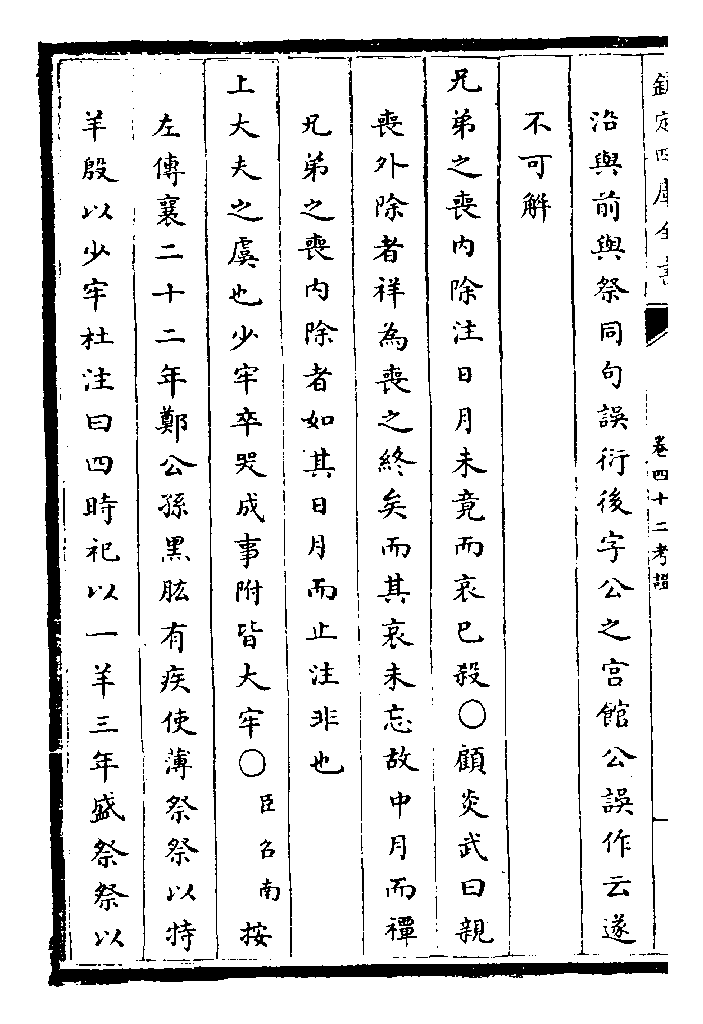 欽定四庫全書
卷四十二考證
沿與前與祭同句誤衍後字公之宫館公誤作云遂
不可解
兄弟之喪内除注日月未竟而哀已殺〇顧炎武曰親
喪外除者祥為喪之終矣而其哀未忘故中月而禫
兄弟之喪内除者如其日月而止注非也
上大夫之虞也少牢卒哭成事附皆大牢〇臣召南按
左傳襄二十二年鄭公孫黑肱有疾使薄祭祭以特
羊殷以少牢杜注曰四時祀以一羊三年盛祭祭以